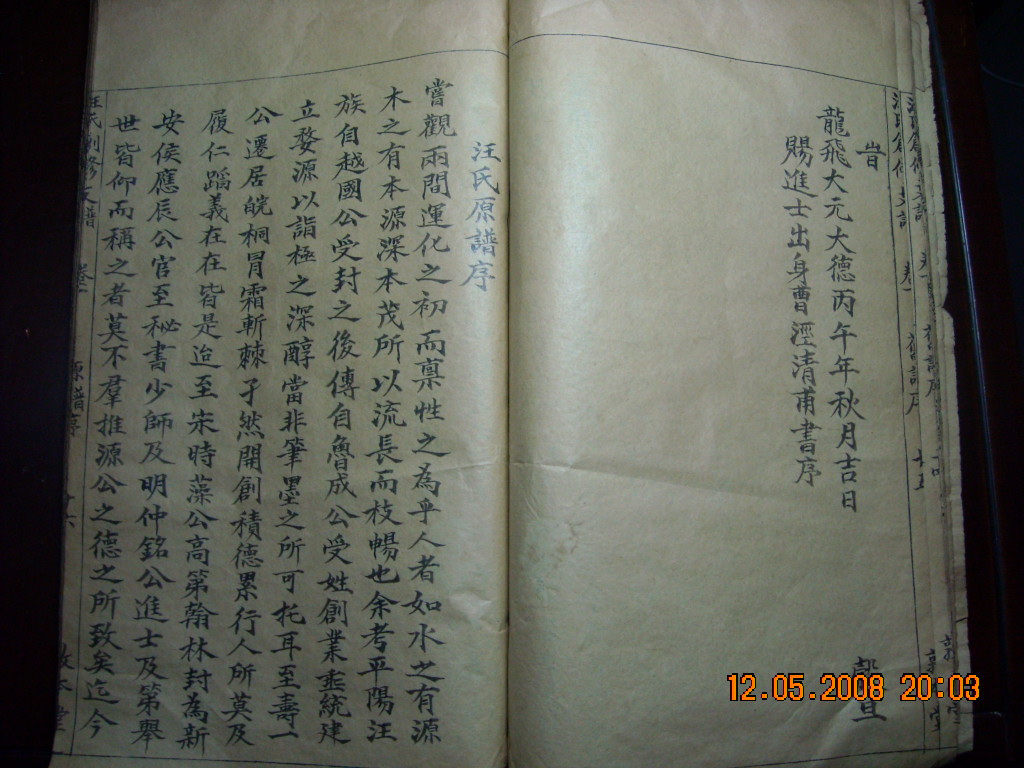 旹
龍飛大元大德丙午年秋月吉日
賜進士出身曹涇清甫書序
穀旦
汪氏原譜序
嘗觀兩間運化之初而稟性之為乎人者如水之有源
木之有本源深本茂所以流長而枝暢也余考平陽汪
族自越國公受封之後傳自魯成公受姓創業垂統建
立婺源以詣極之深醇當非筆墨之所可托耳至壽一
公遷居皖桐冒霜斬棘孑然開創積德累行人所莫及
履仁蹈義在在皆是迨至宋時藻公高第翰林封為新
安侯應辰公官至秘書少師及明仲銘公進士及第舉
世皆仰而稱之者莫不羣推源公之德之所致矣迄今
汪氏創修支譜
卷一
原譜序
十六
12.05.2008 20:03